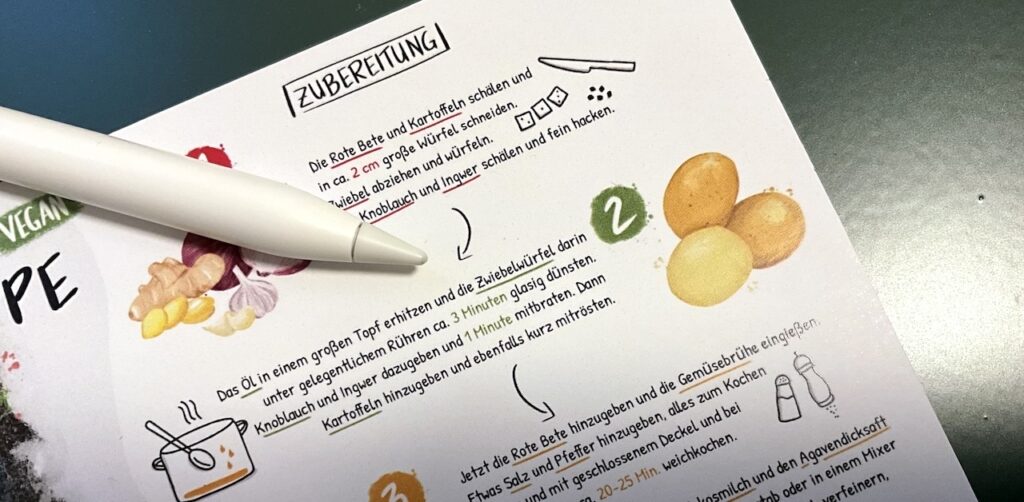 ZUBEREITUNG
Die Rote Bete und Kartoffeln schälen und
in ca. 2 cm große Würfel schneiden.
Zwiebel abziehen und würfeln.
Knoblauch und Ingwer schälen und fein hacken.
VEGAN
PE
2
Das Öl in einem großen Topf erhitzen und die Zwiebelwürfel darin
unter gelegentlichem Rühren ca. 3 Minuten glasig dünsten.
Knoblauch und Ingwer dazugeben und 1 Minute mitbraten. Dann
Kartoffeln hinzugeben und ebenfalls kurz mitrösten.
3
Jetzt die Rote Bete hinzugeben und die Gemüsebrühe eingießen.
Etwas Salz und Pfeffer hinzugeben, alles zum Kochen
und mit geschlossenem Deckel und bei
20-25 Min. weichkochen.
kosmilch und den Agavendicksaft
tab oder in einem Mixer
verfeinern,